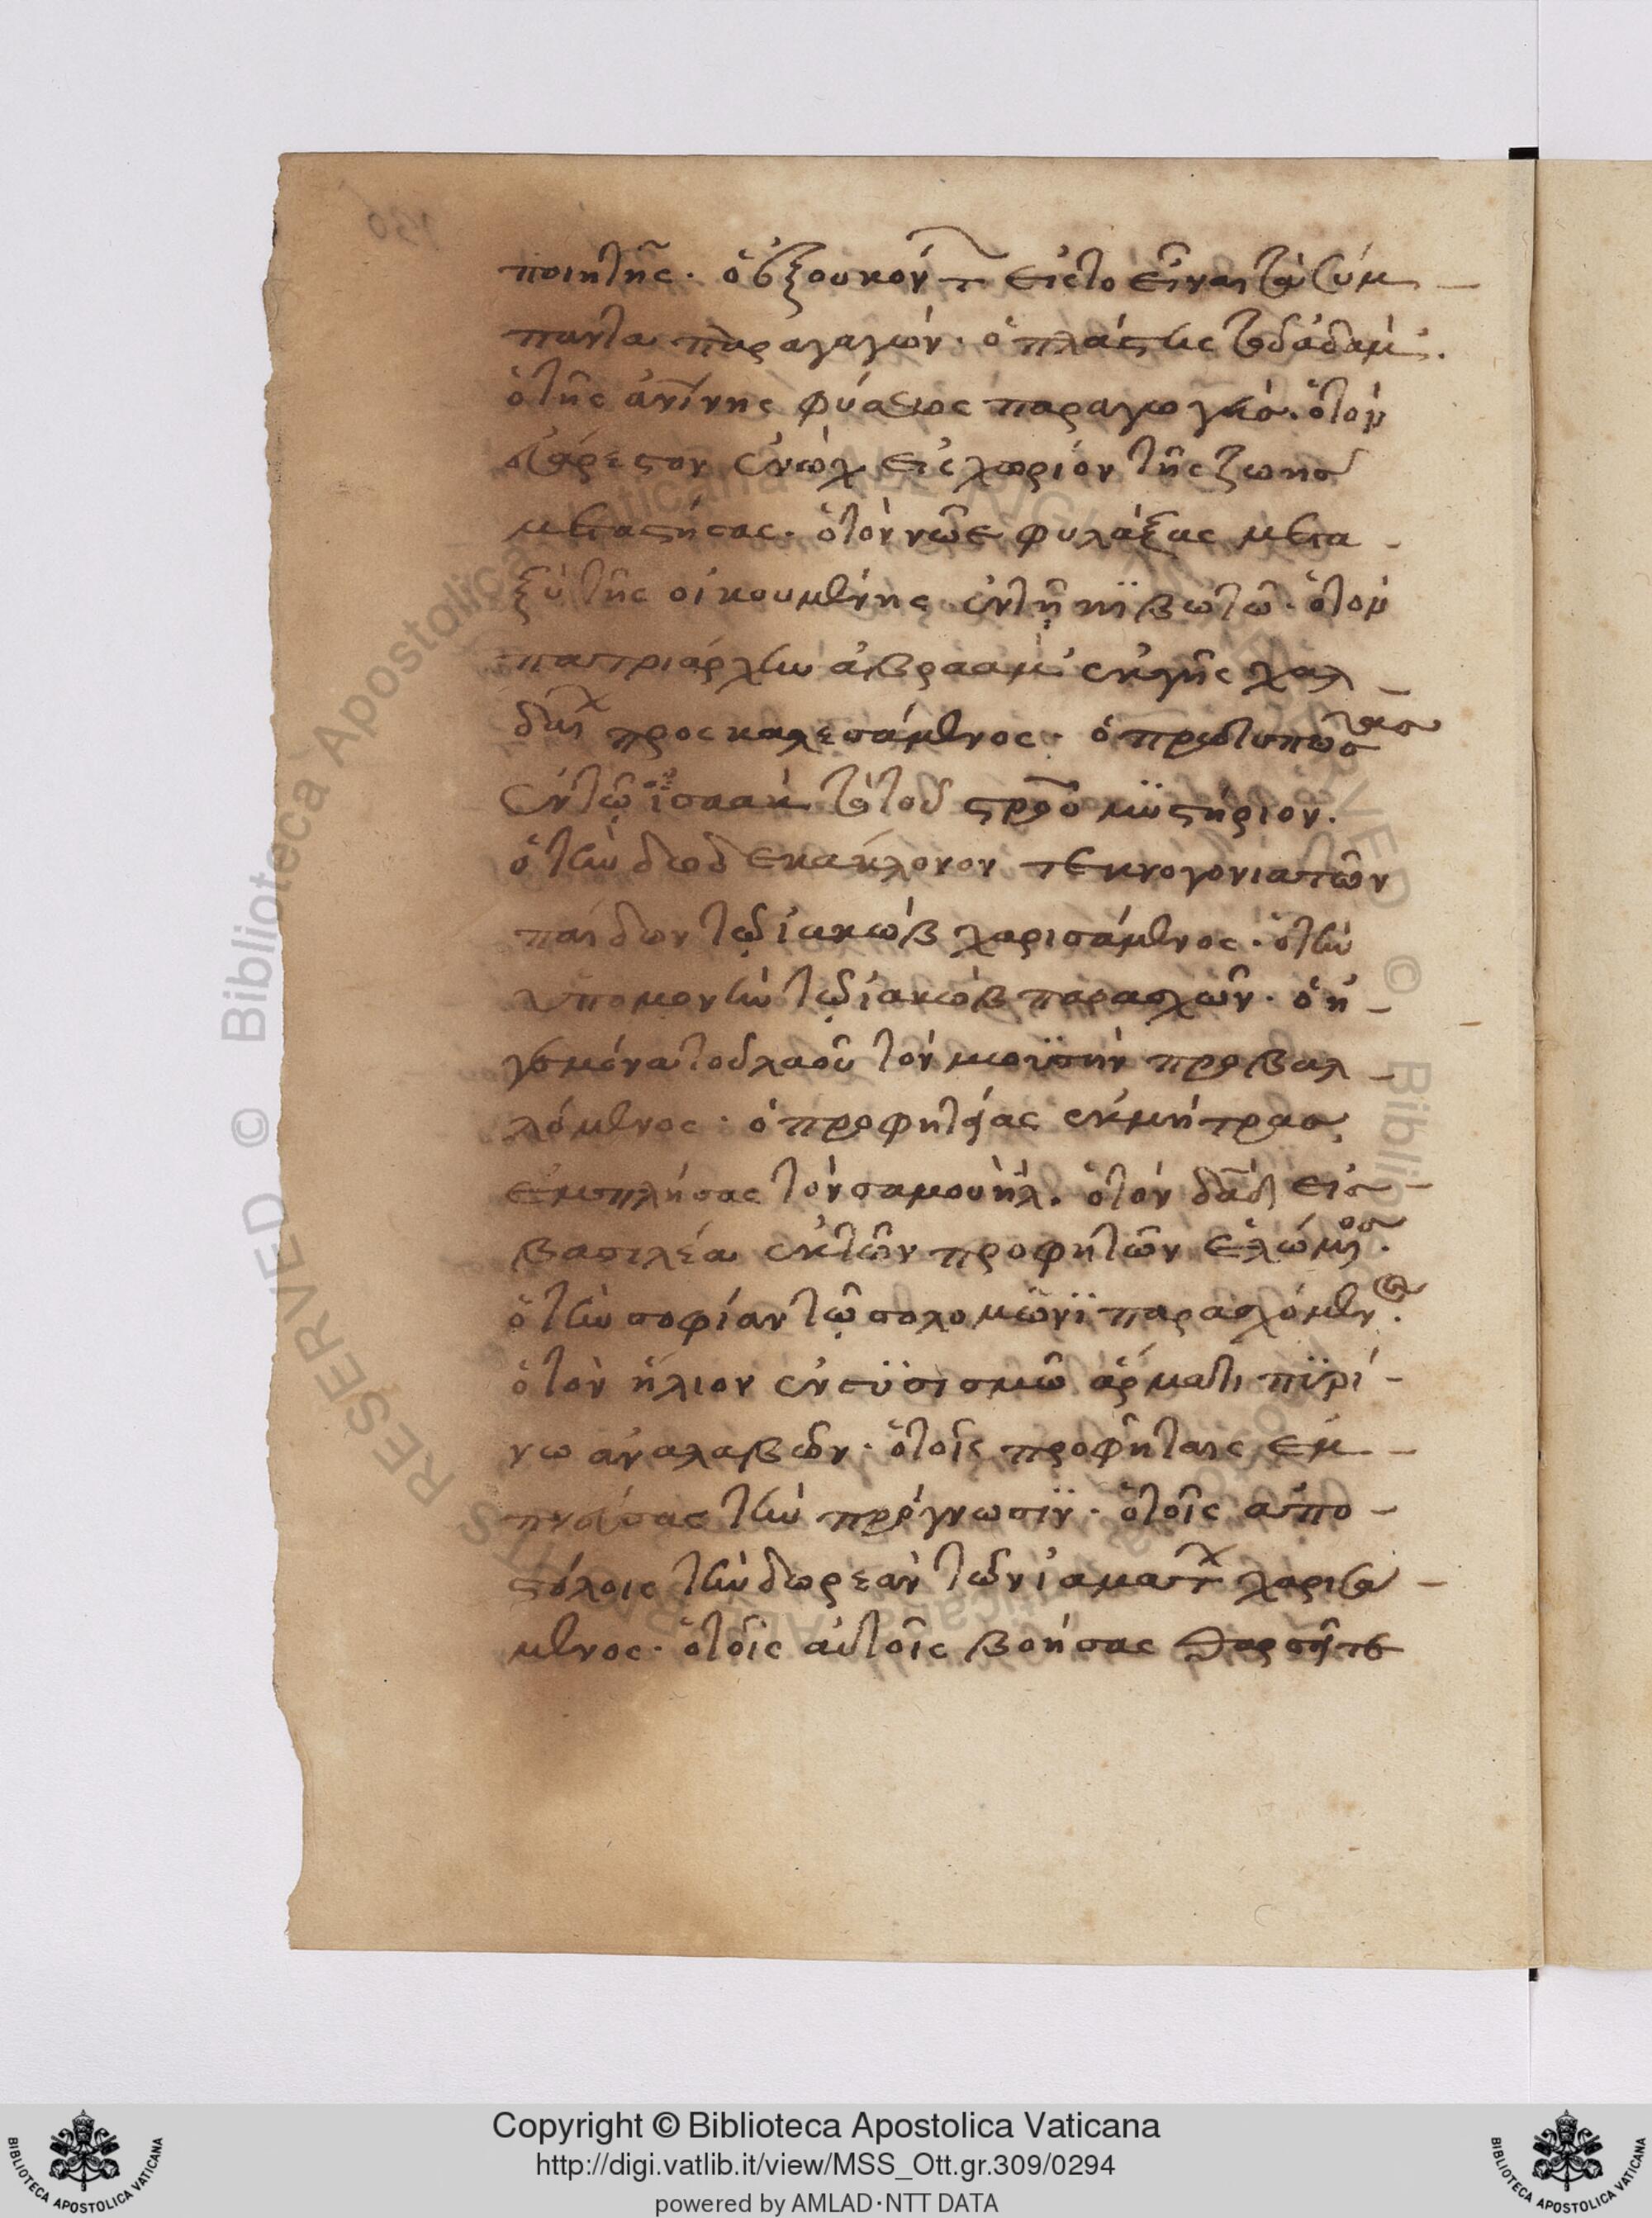 ποιητῆς· ὁ ἐξ οὐκ ὄντ εἰς τὸ εἶναι τὰ σύμ-
παντα παραγαγών· ὁ πλάσας τὸν ἀδάμ·
ὁ τῆς φύσεως παραγωγεύς· ὁ τὸν
εὐάρεστον ἐνὼχ εἰς χωρίον τῆς ζωῆς
μεταστήσας· ὁ τὸν νῶε φυλάξας μετα-
ξὺ τῆς οἰκουμένης ἐν τῇ κϊβωτῶ· ὁ τὸν
πατριάρχην ἀβραὰμ ἐκ γῆς χαλ-
δαι προσκαλεσάμενος· ὁ πρωτυπώσας
ἐν τῷ ἰσαὰκ τὸ τοῦ στροῦ μϋστήριον·
ὁ τὴν δωδεκάκλονον τεκνογονία τῶν
παίδων τῷ ἰακὼβ χαρισάμενος· ὁ τὴν
ὑπομονὴν τῷ ἰακὼβ παρασχών· ὁ ἡ-
γεμόνα τοῦ λαοῦ τὸν μωϋσὴν προβαλ-
λόμενος· ὁ προφητείας ἐκ μήτρας
ἐμπλήσας τὸν σαμουὴλ· ὁ τὸν δαδ εἰς
βασιλέα ἐκ τῶν προφητῶν ἑλώμενος·
ὁ τὴν σοφίαν τῷ σολομῶνϊ παρασχόμενος·
ὁ τὸν ἥλιον ἐν συσισμῶ ἅρματι πϋρί-
νω ἀναλαβών· ὁ τοῖς προφήταις ἐμ-
πνεύσας τὴν πρόγνωσϊν· ὁ τοῖς ἀπο-
στόλοις τὴν δωρεὰν τῶν ἰαματ χαρισα-
μενος· ὁ τοῖς αὐτοῖς βοήσας θαρσεῖτε
Copyright © Biblioteca Apostolica Vaticana
http://digi.vatlib.it/view/MSS_Ott.gr.309/0294
powered by AMLAD·NTT DATA